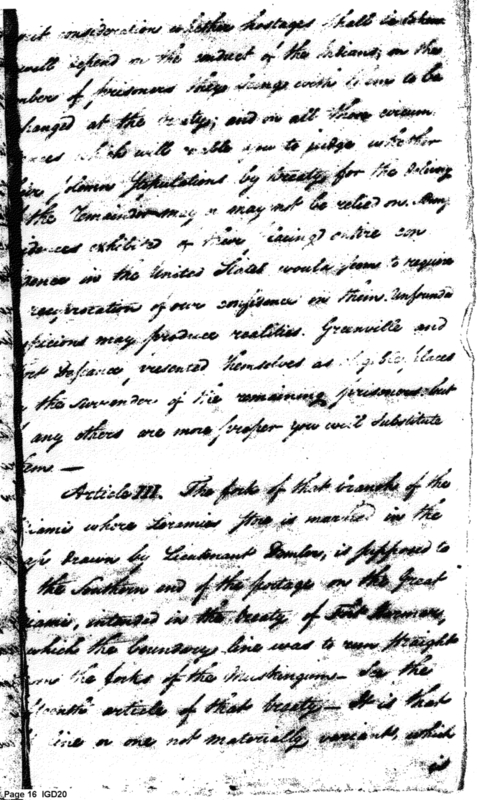 consideration whether hostages shall be taken
will depend on the conduct of the Indians; on the
of prisoners they bring with them to be
at the treaty; and on all those circum
which will enable you to judge whether
Stipulations by treaty for the
the remainder may or may not be relied on. Many
exhibited of their placing entire con
in the United States would seem to require
reciprocation of our confidence in them. Unfounded
may produce realities. Greenville and
Defiance, presented themselves as eligible places
the surrender of the remaining prisoners: but
any others are more proper you will substitute
them —
Article III. The fork of that branch of the
where Loramies store is marked in the
drawn by Lieutenant Demler, is supposed to
the Southern end of the portage on the Great
intended in the treaty of Fort Harmar,
which the boundary line was to run straight
the forks of the Muskingum — See the
article of that treaty — It is that
line or one not materially variant, which
is
Page 16 IGD20